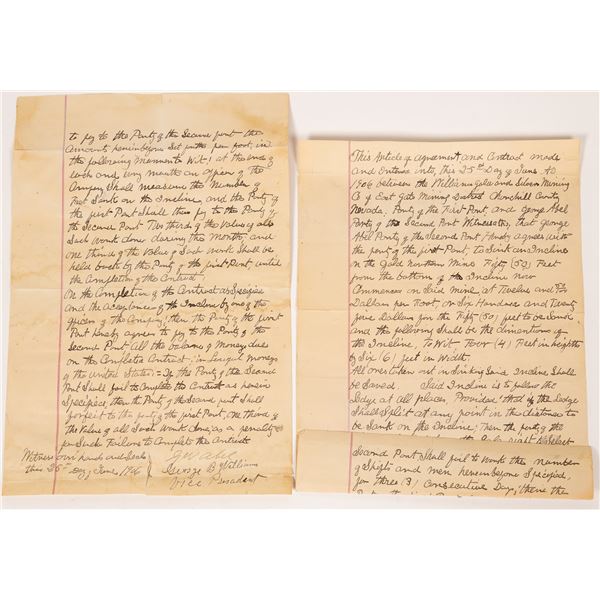 to pay to the Party of the Second part the
amounts hereinbefore Set per foot, in
the following Manner to Wit; at the end of
each and every month an officer of the
Company Shall measure the Number of
Feet Sunk on the Incline, and the Party of
the first Part Shall then pay to the Party of
the Second Part Two thirds of the Value of all
Such Work done during the Month and
one third of the Value of Such Work Shall be
held back by the Party of the first Part, until
the Completion of the Contract.
On the Completion of the Contract as Specified
and the acceptance of the Incline by one of the
officers of the Company, then the Party of the first
Part hereby agrees to pay to the Party of the
Second Part All the balance of Money due
on the Completed Contract, in Lawful Money
of the United States = If the Party of the Second
Part Shall fail to Complete the Contract as herein
Specified, then the Party of the Second part Shall
forfeit to the party of the first Part, one third of
the Value of all Such Work done, as a penalty
for Such Failure to Complete the Contract
Witness our hands and Seals
this 25th Day, June, 1906
George B Williams
Vice President
This Article of agreement and Contract made
and Entered into, this 25th Day of June. AD
1906 between the Williams Gold and Silver Mining
Co of East Gate Mining District Churchill County
Nevada. Party of the First Part, and George Abel
Party of the Second Part Witnesseth, that George
Abel Party of the Second Part Hereby agrees with
the party of the first Part, to Sink an Incline
on the Gold Mine Fifty (50) Feet
from the bottom of the Incline Now
Commenced on Said mine at Twelve and 50/100
Dollars per Foot, or Six Hundred and Twenty
five Dollars for the Fifty (50) feet to be Sunk
and the following Shall be the dimentions of
the Incline, to Wit, Four (4) Feet in height
by Six (6) feet in Width.
All ore taken out in Sinking Said Incline Shall
be Saved. Said Incline is to follow the
Ledge at all places Provided that if the Ledge
Shall Split at any point in the distance to
be Sunk on the Incline, Then the party of the
right to Select
Second Part Shall fail to Work the number
of Shifts and men hereinbefore Specified,
for three (3) Consecutive Days, then the